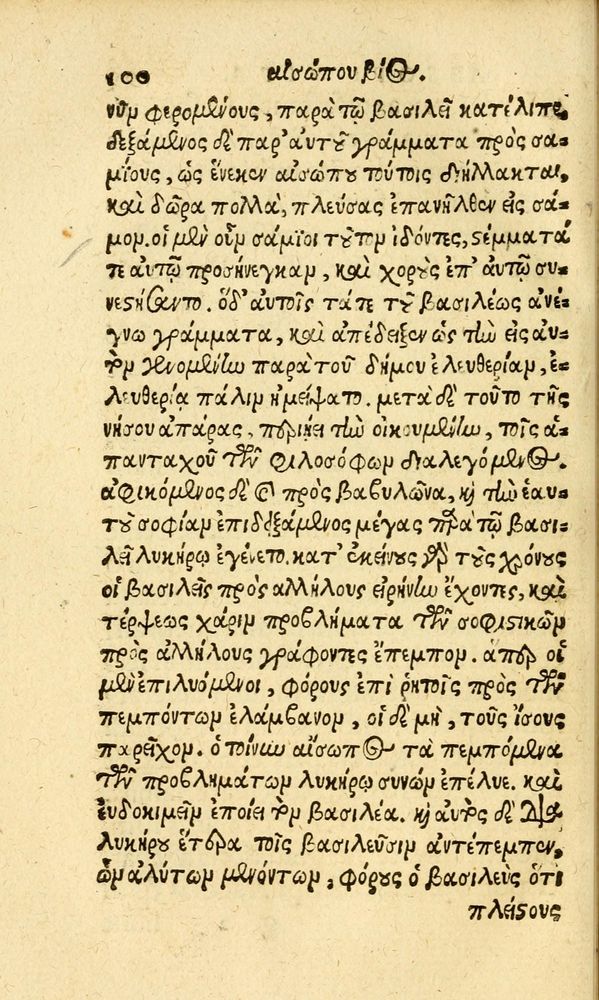 100 αἰσώπου βίος.
νῦν φερομένους, παρὰ τῷ βασιλεῖ κατέλιπε,
δεξάμενος δὲ παρ' αὐτοῦ γράμματα πρὸς σα-
μίους, ὡς ἕνεκεν αἰσώπου τούτοις διήλλακται,
καὶ δῶρα πολλὰ, πλεύσας ἐπανῆλθεν εἰς σά-
μον. οἱ μὲν οὖν σάμιοι τοῦτον ἰδόντες, στέμματά
τε αὐτῷ προσήνεγκαν, καὶ χοροὺς ἐπ' αὐτῷ συ-
νεστήσαντο. ὁ δ' αὐτοῖς τά τε τοῦ βασιλέως ἀνέ-
γνω γράμματα, καὶ ἀπέδειξεν ὡς τὴν εἰς αὐ-
τὸν γενομένην παρὰ τοῦ δήμου ἐλευθερίαν, ἐ-
λευθερίᾳ πάλιν ἠμείψατο. μετὰ δὲ τοῦτο τῆς
νήσου ἀπάρας, περιῄει τὴν οἰκουμένην, τοῖς ἁ-
πανταχοῦ τῶν φιλοσόφων διαλεγόμενος.
ἀφικόμενος δὲ καὶ πρὸς βαβυλῶνα, καὶ τὴν ἑαυ-
τοῦ σοφίαν ἐπιδειξάμενος μέγας παρὰ τῷ βασι-
λεῖ λυκήρῳ ἐγένετο. κατ' ἐκείνους γὰρ τοὺς χρόνους
οἱ βασιλεῖς πρὸς ἀλλήλους εἰρήνην ἔχοντες, καὶ
τέρψεως χάριν προβλήματα τῶν σοφιστικῶν
πρὸς ἀλλήλους γράφοντες ἔπεμπον. ἅπερ οἱ
μὲν ἐπιλυόμενοι, φόρους ἐπὶ ῥητοῖς πρὸς τῶν
πεμπόντων ἐλάμβανον, οἱ δὲ μὴ, τοὺς ἴσους
παρεῖχον. ὁ τοίνυν αἴσωπος τὰ πεμπόμενα
τῶν προβλημάτων λυκήρῳ συνὼν ἐπέλυε. καὶ
εὐδοκιμεῖν ἐποίει τὸν βασιλέα. καὶ αὐτὸς δὲ διὰ
λυκήρου ἕτερα τοῖς βασιλεῦσιν ἀντέπεμπεν,
ὧν ἀλύτων μενόντων, φόρους ὁ βασιλεὺς ὅτι
πλείστους